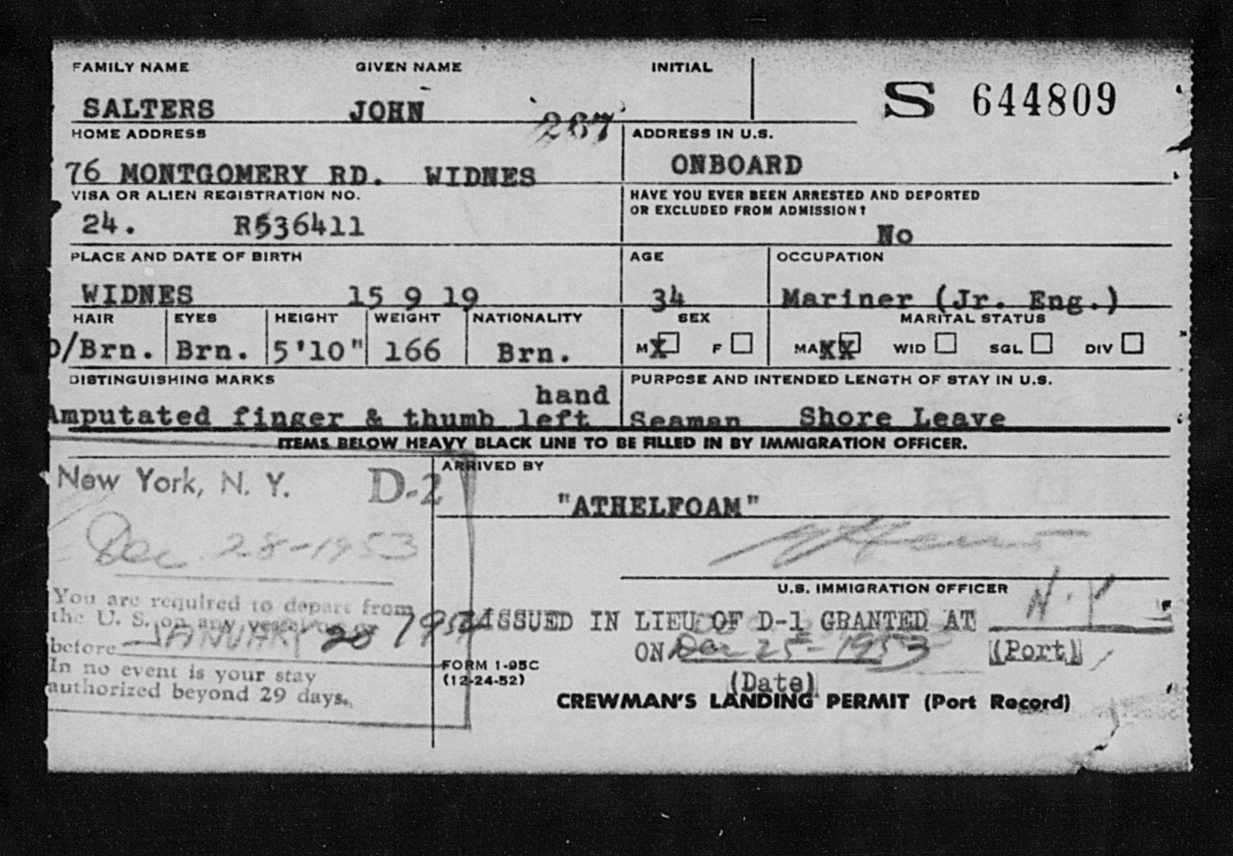 FAMILY NAME GIVEN NAME INITIAL
SALTERS JOHN
S 644809
267
HOME ADDRESS ADDRESS IN U.S.
76 MONTGOMERY RD. WIDNES ONBOARD
VISA OR ALIEN REGISTRATION NO. HAVE YOU EVER BEEN ARRESTED AND DEPORTED
OR EXCLUDED FROM ADMISSION?
24. R536411 No
PLACE AND DATE OF BIRTH AGE OCCUPATION
WIDNES 15 9 19 34 Mariner (Jr. Eng.)
HAIR EYES HEIGHT WEIGHT NATIONALITY SEX MARITAL STATUS
D/Brn. Brn. 5'10" 166 Brn. M X F MAXX WID SGL DIV
DISTINGUISHING MARKS PURPOSE AND INTENDED LENGTH OF STAY IN U.S.
hand
Amputated finger & thumb left Seaman Shore Leave
ITEMS BELOW HEAVY BLACK LINE TO BE FILLED IN BY IMMIGRATION OFFICER.
ARRIVED BY
New York, N. Y. D-2
"ATHELFOAM"
Dec 28-1953
U.S. IMMIGRATION OFFICER
You are required to depart from
the U. S. on any vessel on or
before JANUARY 20 1954
In no event is your stay
authorized beyond 29 days.
ISSUED IN LIEU OF D-1 GRANTED AT N.Y
ON Dec 25-1953 (Port)
(Date)
FORM I-95C
(12-24-52)
CREWMAN'S LANDING PERMIT (Port Record)